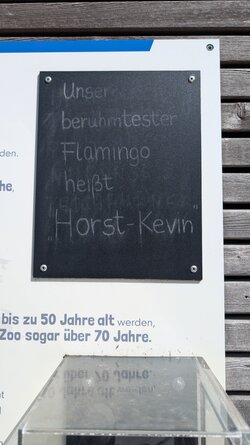 Unser
berühmtester
Flamingo
heißt
„Horst-Kevin"
den.
he,
bis zu 50 Jahre alt werden,
Zoo sogar über 70 Jahre.